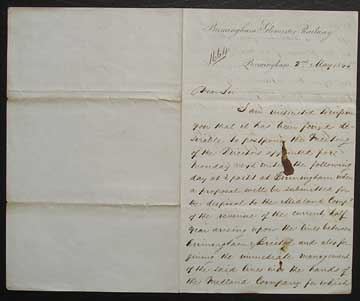 Birmingham & Gloucester Railway
Birmingham, 2nd May 1845
Dear Sir
I am instructed to inform
you that it has been found de
sirable to postpone the Meeting
of the Directors appointed for
Monday next until the following
day at 2 o'clock at Birmingham when
a proposal will be submitted for
the disposal to the Midland Compy
of the revenue of the current half
Year arising upon the lines between
Birmingham & Bristol and also for
giving the immediate management
of the said lines into the hands of
the Midland Company for which